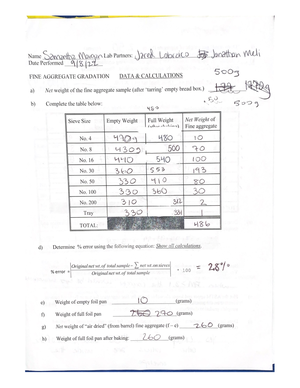 Name Samantha Moran Lab Partners: Jared Jonathan Meli
Date Performed 9/8/22
500g
FINE AGGREGATE GRADATION DATA & CALCULATIONS
a) Net weight of the fine aggregate sample (after 'tarring' empty bread box.)
500g
b) Complete the table below:
Sieve Size Empty Weight Full Weight Net Weight of Fine aggregate
No. 4 470g 480 10
No. 8 430g 500 70
No. 16 440 540 100
No. 30 360 553 193
No. 50 330 410 80
No. 100 330 360 30
No. 200 310 312 2
Tray 330 331 1
TOTAL: 486
d) Determine % error using the following equation: Show all calculations.
% error = |Original net wt of total sample − ∑ net wt on sieves| / Original net wt of total sample * 100 = 28%
e) Weight of empty foil pan 10 (grams)
f) Weight of full foil pan 270 (grams)
g) Net weight of "air dried" (from barrel) fine aggregate (f – e) 260 (grams)
h) Weight of full foil pan after baking: 260 (grams)